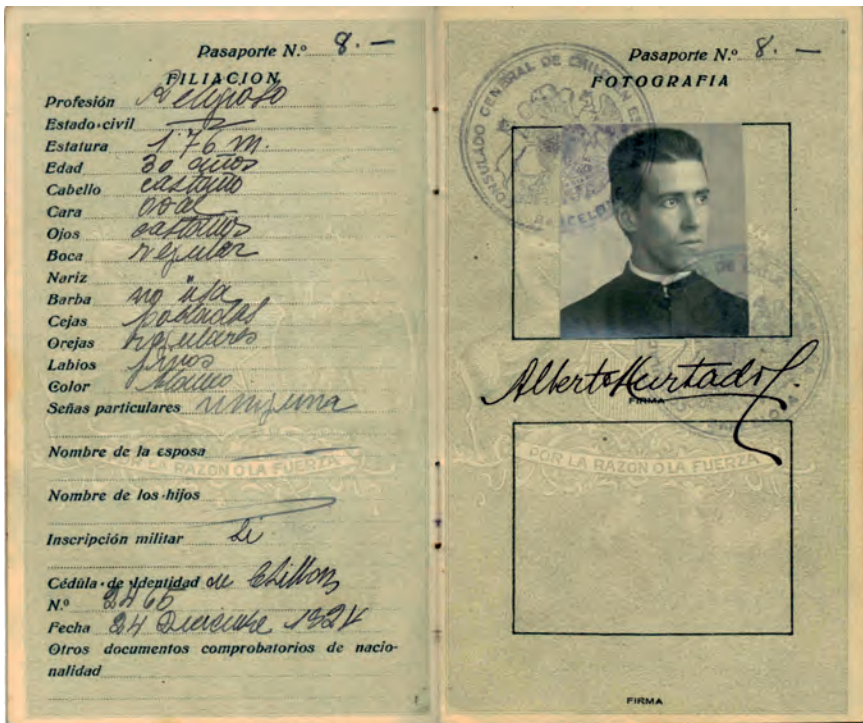 Pasaporte N.º 8. —
FILIACION
Profesión Religioso
Estado civil
Estatura 1.76 m.
Edad 30 años
Cabello castaño
Cara oval
Ojos castaños
Boca regular
Nariz
Barba no usa
Cejas pobladas
Orejas regulares
Labios finos
Color blanco
Señas particulares ninguna
Nombre de la esposa
Nombre de los hijos
Inscripción militar Si
Cédula de Identidad de
N.º 2465
Fecha 24 Diciembre
Otros documentos comprobatorios de nacio-
nalidad
POR LA RAZON O LA FUERZA
Pasaporte N.º 8. —
FOTOGRAFIA
CONSULADO GENERAL DE CHILE EN
BARCELONA
Alberto Hurtado C.
FIRMA
POR LA RAZON O LA FUERZA
FIRMA